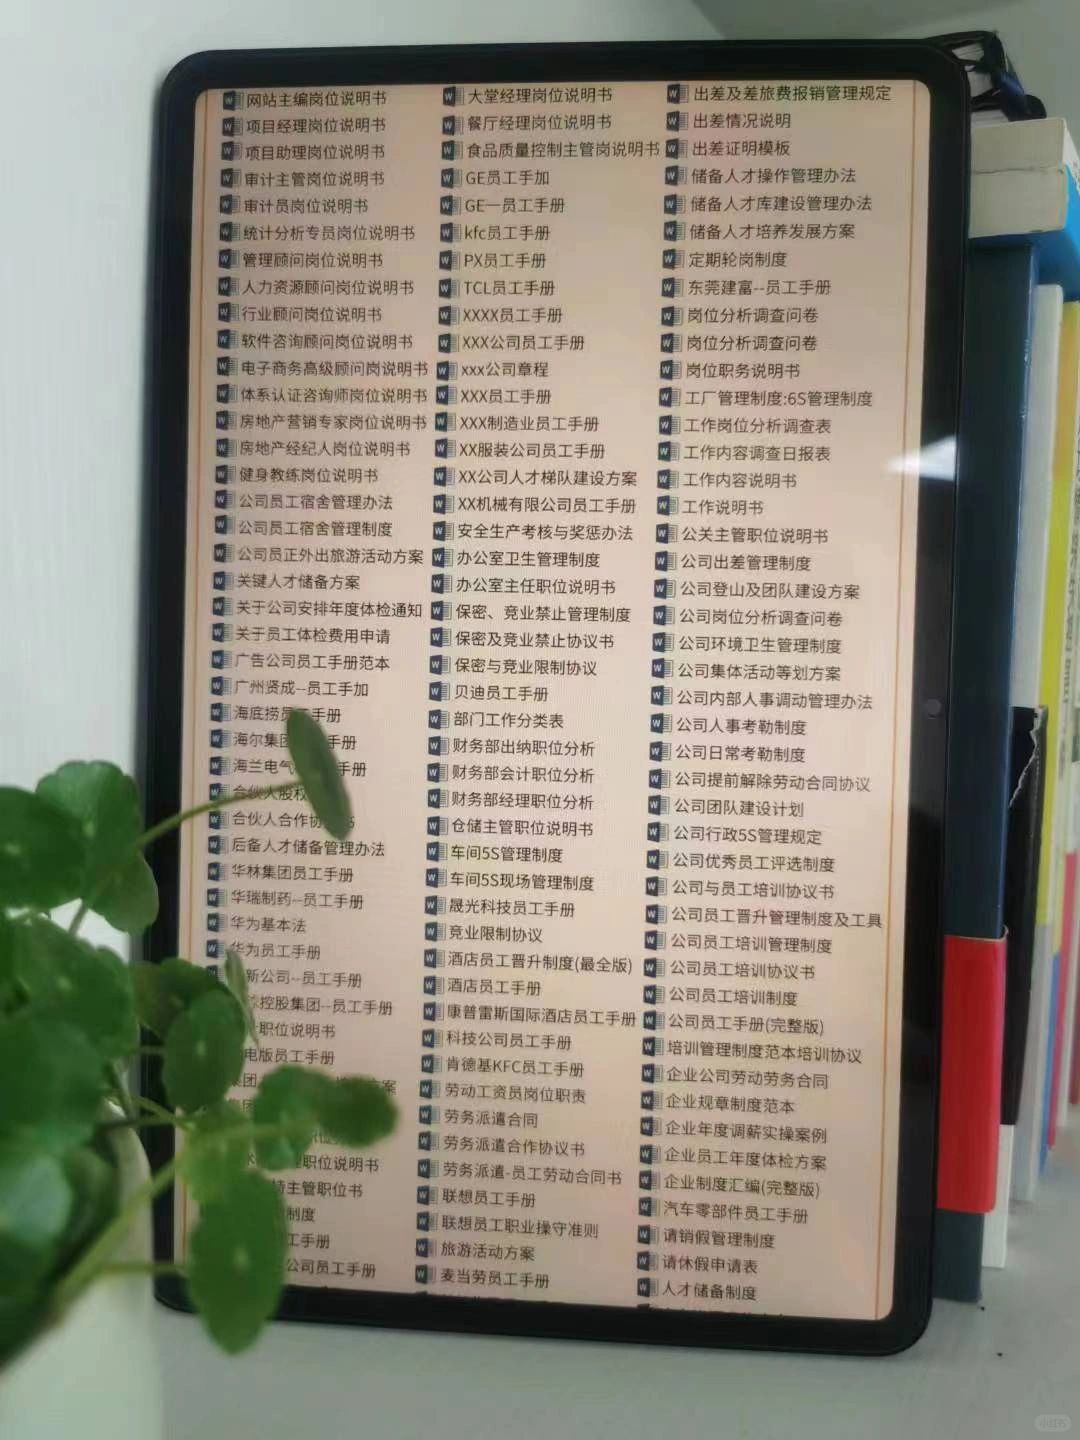 网站主编岗位说明书
项目经理岗位说明书
项目助理岗位说明书
审计主管岗位说明书
审计员岗位说明书
统计分析专员岗位说明书
管理顾问岗位说明书
人力资源顾问岗位说明书
行业顾问岗位说明书
软件咨询顾问岗位说明书
电子商务高级顾问岗说明书
体系认证咨询师岗位说明书
房地产营销专家岗位说明书
房地产经纪人岗位说明书
健身教练岗位说明书
公司员工宿舍管理办法
公司员工宿舍管理制度
公司员正外出旅游活动方案
关键人才储备方案
关于公司安排年度体检通知
关于员工体检费用申请
广告公司员工手册范本
广州贤成--员工手加
海底捞员 手册
海尔集 手册
海兰电气 手册
合伙人股权
合伙人合作协
后备人才储备管理办法
华林集团员工手册
华瑞制药--员工手册
华为基本法
华为员工手册
新公司--员工手册
控股集团--员工手册
职位说明书
电版员工手册
集团 方案
职位说明书
主管职位书
制度
工手册
公司员工手册
大堂经理岗位说明书
餐厅经理岗位说明书
食品质量控制主管岗说明书
GE员工手加
GE一员工手册
kfc员工手册
PX员工手册
TCL员工手册
XXXX员工手册
XXX公司员工手册
xxx公司章程
XXX员工手册
XXX制造业员工手册
XX服装公司员工手册
XX公司人才梯队建设方案
XX机械有限公司员工手册
安全生产考核与奖惩办法
办公室卫生管理制度
办公室主任职位说明书
保密、竞业禁止管理制度
保密及竞业禁止协议书
保密与竞业限制协议
贝迪员工手册
部门工作分类表
财务部出纳职位分析
财务部会计职位分析
财务部经理职位分析
仓储主管职位说明书
车间5S管理制度
车间5S现场管理制度
晟光科技员工手册
竞业限制协议
酒店员工晋升制度(最全版)
酒店员工手册
康普雷斯国际酒店员工手册
科技公司员工手册
肯德基KFC员工手册
劳动工资员岗位职责
劳务派遣合同
劳务派遣合作协议书
劳务派遣-员工劳动合同书
联想员工手册
联想员工职业操守准则
旅游活动方案
麦当劳员工手册
出差及差旅费报销管理规定
出差情况说明
出差证明模板
储备人才操作管理办法
储备人才库建设管理办法
储备人才培养发展方案
定期轮岗制度
东莞建富--员工手册
岗位分析调查问卷
岗位分析调查问卷
岗位职务说明书
工厂管理制度:6S管理制度
工作岗位分析调查表
工作内容调查日报表
工作内容说明书
工作说明书
公关主管职位说明书
公司出差管理制度
公司登山及团队建设方案
公司岗位分析调查问卷
公司环境卫生管理制度
公司集体活动等划方案
公司内部人事调动管理办法
公司人事考勒制度
公司日常考勒制度
公司提前解除劳动合同协议
公司团队建设计划
公司行政5S管理规定
公司优秀员工评选制度
公司与员工培训协议书
公司员工晋升管理制度及工具
公司员工培训管理制度
公司员工培训协议书
公司员工培训制度
公司员工手册(完整版)
培训管理制度范本培训协议
企业公司劳动劳务合同
企业规章制度范本
企业年度调薪实操案例
企业员工年度体检方案
企业制度汇编(完整版)
汽车零部件员工手册
请销假管理制度
请休假申请表
人才储备制度
小红书